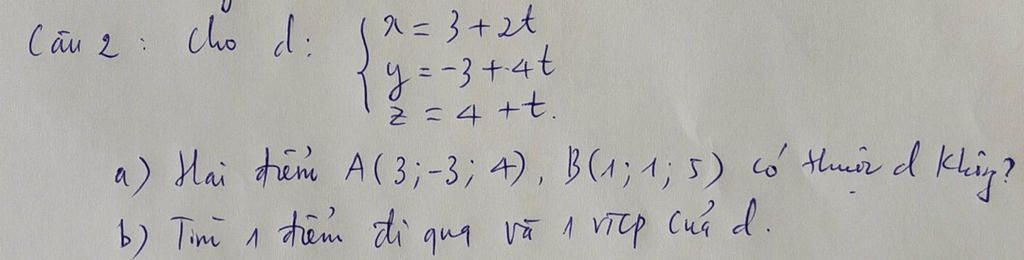 Câu 2 : Cho d: { x = 3 + 2t
y = -3 + 4t
z = 4 + t.
a) Hai điểm A(3;-3; 4), B(1; 1; 5) có thuộc d không?
b) Tìm 1 điểm đi qua và 1 vtcp của d.